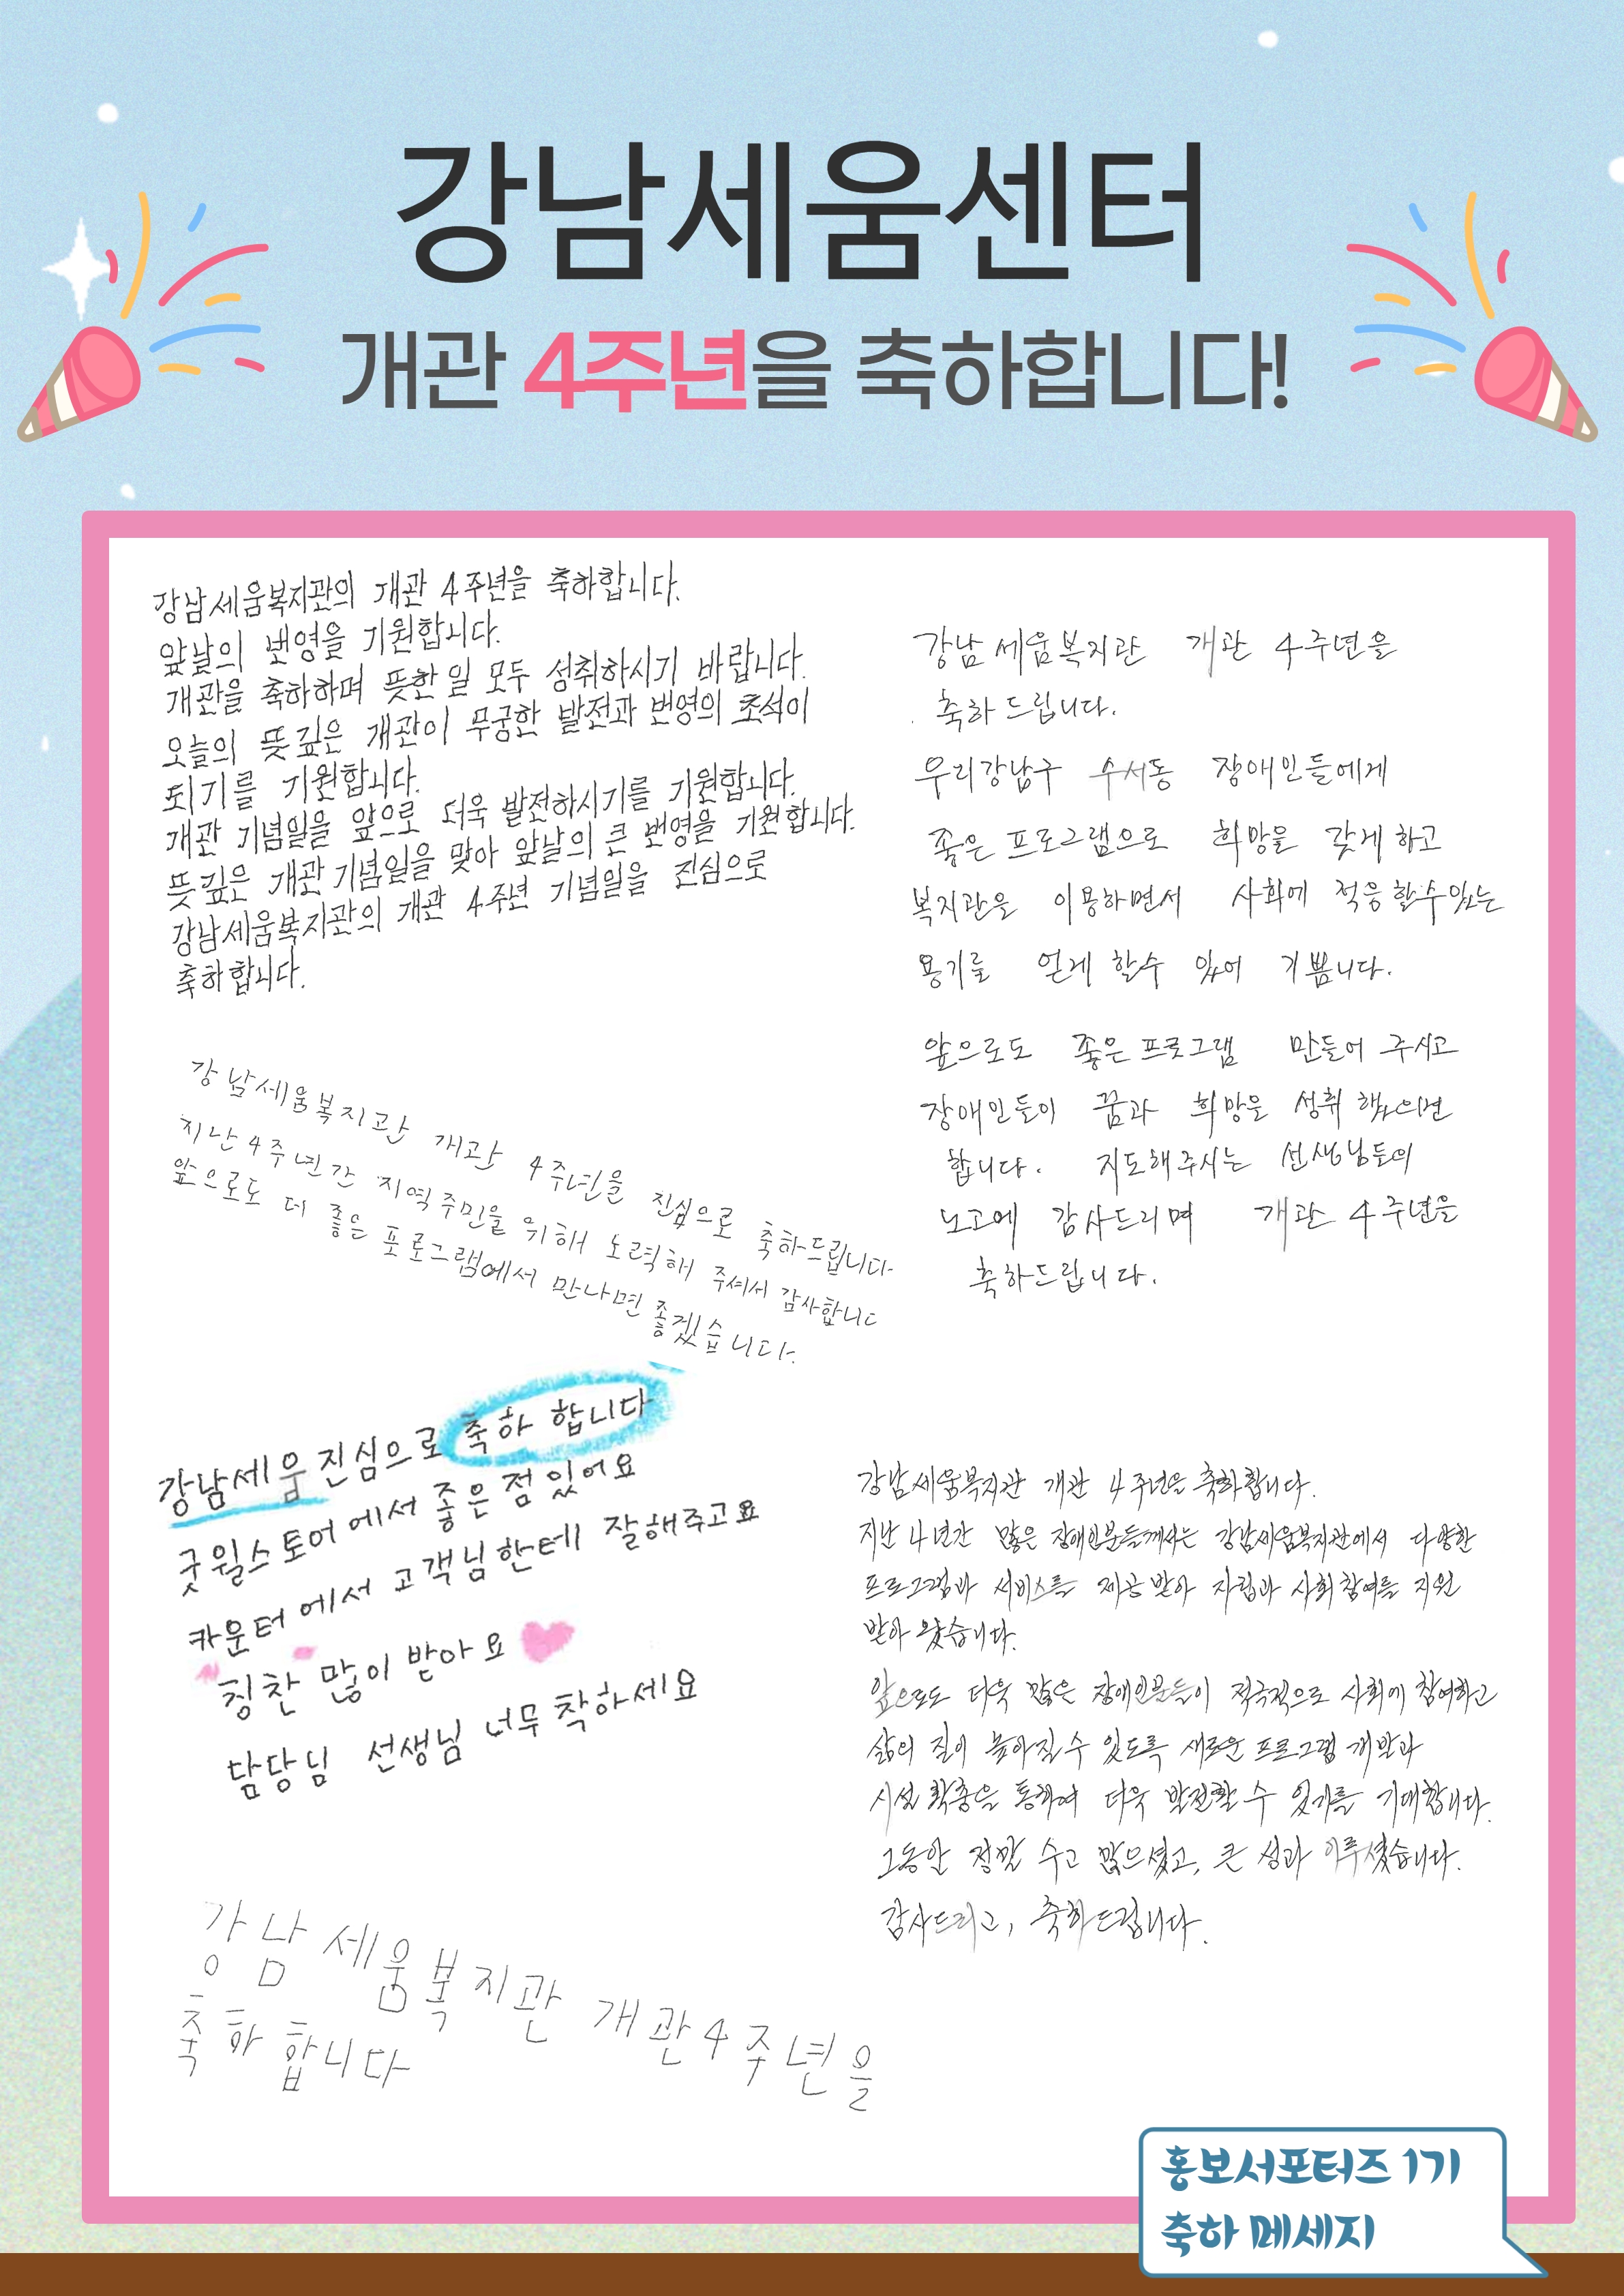 강남세움센터
개관 4주년을 축하합니다!
강남세움복지관의 개관 4주년을 축하합니다.
앞날의 번영을 기원합니다.
개관을 축하하며 뜻한 일 모두 성취하시기 바랍니다.
오늘의 뜻깊은 개관이 무궁한 발전과 번영의 초석이
되기를 기원합니다.
개관 기념일을 앞으로 더욱 발전하시기를 기원합니다.
뜻깊은 개관 기념일을 맞아 앞날의 큰 번영을 기원합니다.
강남세움복지관의 개관 4주년 기념일을 진심으로
축하합니다.
강남세움복지관 개관 4주년을
축하 드립니다.
우리강남구 수서동 장애인들에게
좋은 프로그램으로 희망을 갖게 하고
복지관을 이용하면서 사회에 적응 할수 있는
용기를 얻게 할수 있어 기쁩니다.
앞으로도 좋은 프로그램 만들어 주시고
장애인들이 꿈과 희망을 성취 했으면
합니다. 지도해주시는 선생님들의
노고에 감사드리며 개관 4주년을
축하드립니다.
강남세움복지관 개관 4주년을 진심으로 축하드립니다
지난 4주년간 지역주민을 위해 노력해 주셔서 감사합니다
앞으로도 더 좋은 프로그램에서 만나면 좋겠습니다.
강남세움 진심으로 축하 합니다
굿윌스토어에서 좋은 점 있어요
카운터에서 고객님한테 잘해주고요
칭찬 많이 받아요
담당님 선생님 너무 착하세요
강남세움복지관 개관 4주년을 축하합니다.
지난 4년간 많은 장애인분들께서는 강남세움복지관에서 다양한
프로그램과 서비스를 제공 받아 자립과 사회참여를 지원
받아 왔습니다.
앞으로도 더욱 많은 장애인분들이 적극적으로 사회에 참여하고
삶의 질이 높아질 수 있도록 새로운 프로그램 개발과
시설 확충을 통하여 더욱 발전할 수 있기를 기대합니다.
그동안 정말 수고 많으셨고, 큰 성과 이루셨습니다.
감사드리고, 축하드립니다.
강남세움복지관 개관 4주년을
축하 합니다
홍보서포터즈 1기
축하 메세지